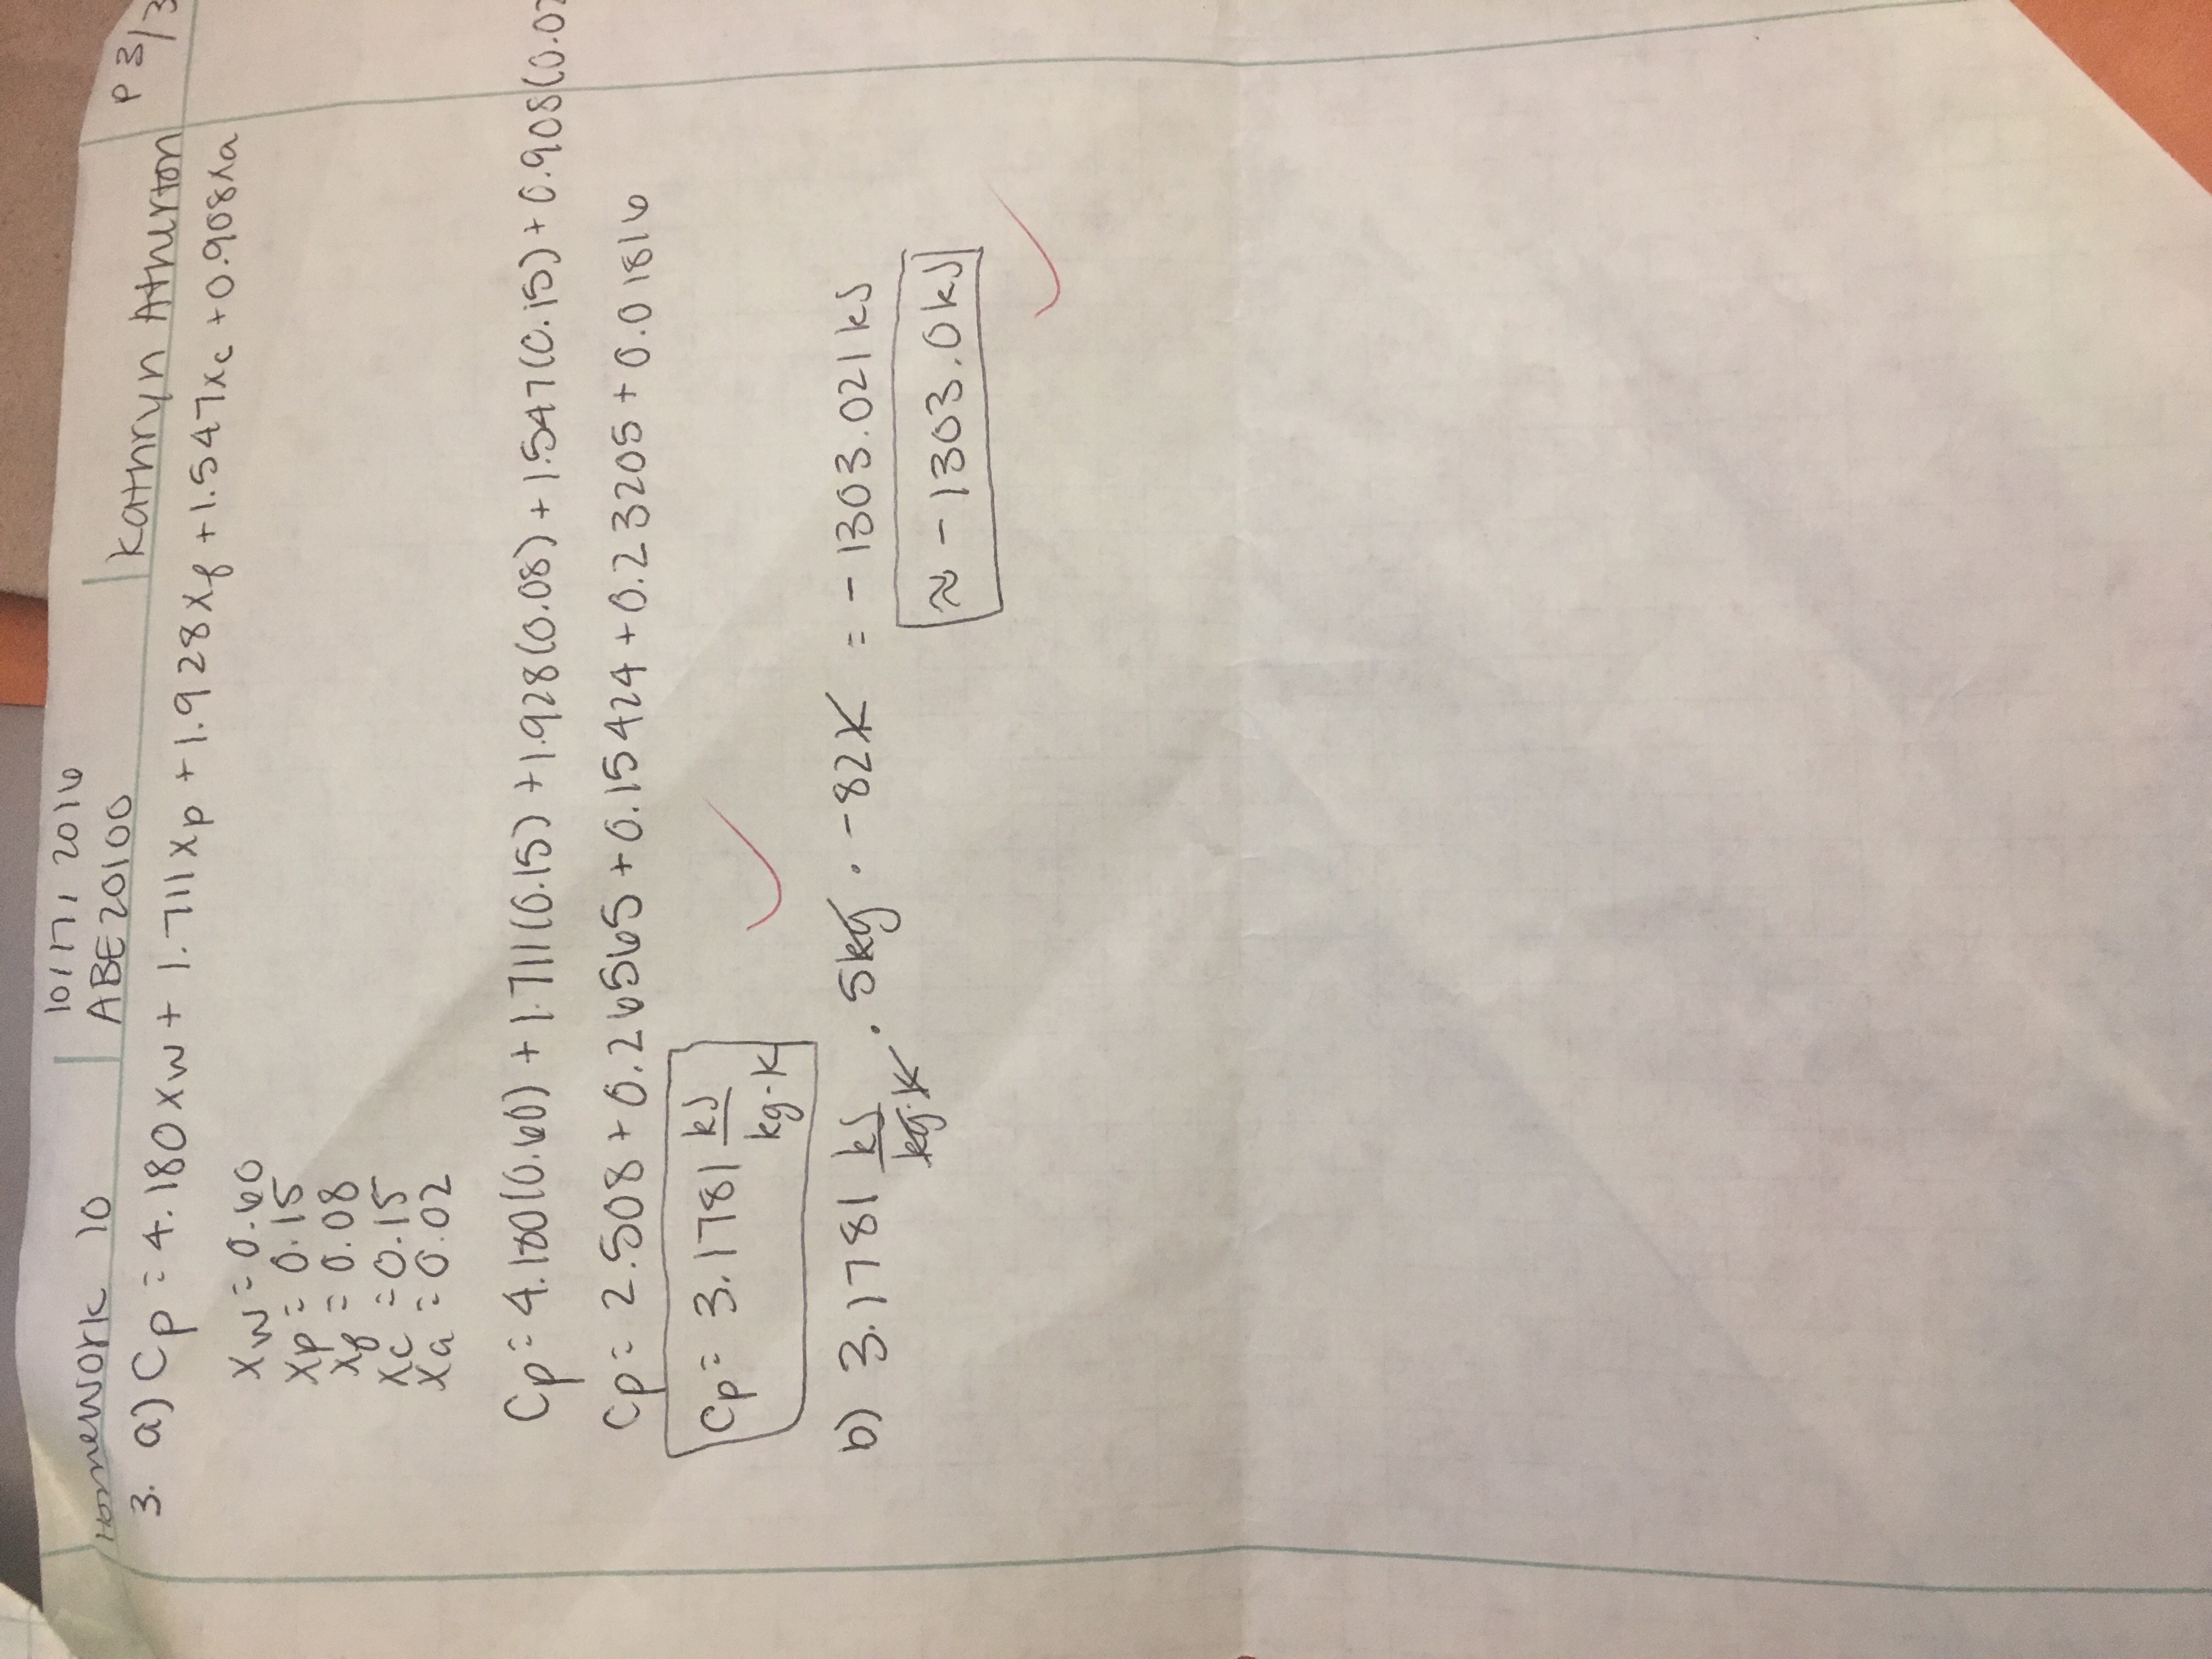 Homework 10
10/17/2016
ABE20100
Kathryn Atherton
P 3/3
3. a) Cp = 4.180xw + 1.711xp + 1.928xf + 1.547xc + 0.908xa
xw = 0.60
xp = 0.15
xf = 0.08
xc = 0.15
xa = 0.02
Cp = 4.180(0.60) + 1.711(0.15) + 1.928(0.08) + 1.547(0.15) + 0.908(0.02
Cp = 2.508 + 0.26565 + 0.15424 + 0.23205 + 0.01816
Cp = 3.1781 kJ/kg·K
b) 3.1781 kJ/kg·K · 5kg · -82K = -1303.021 kJ
≈ -1303.0 kJ